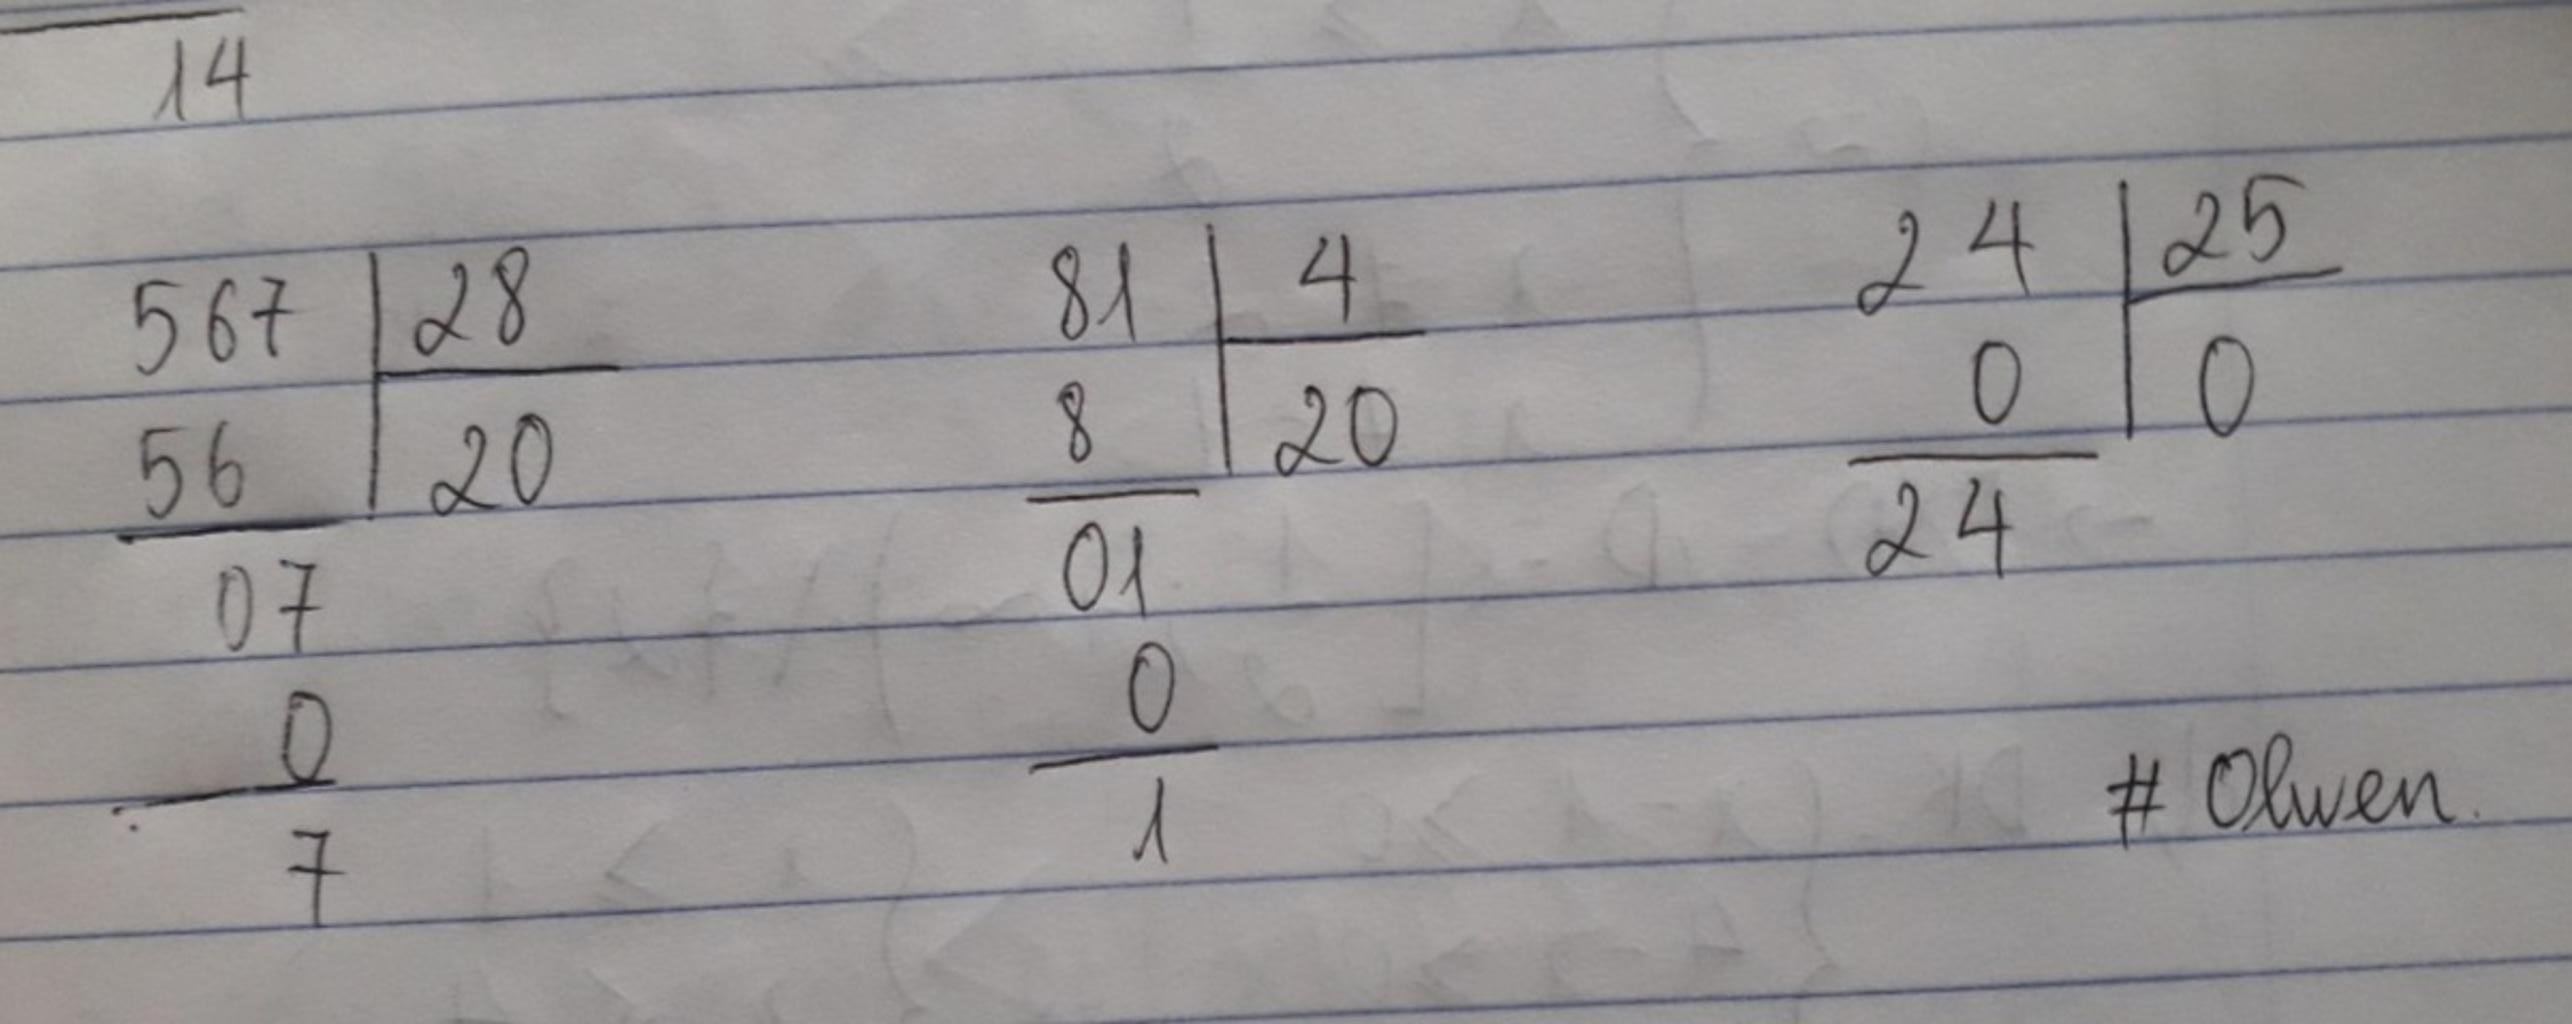 14
567 28
56 20
07
0
7
81 4
8 20
01
0
1
24 25
0 0
24
# Olwen.